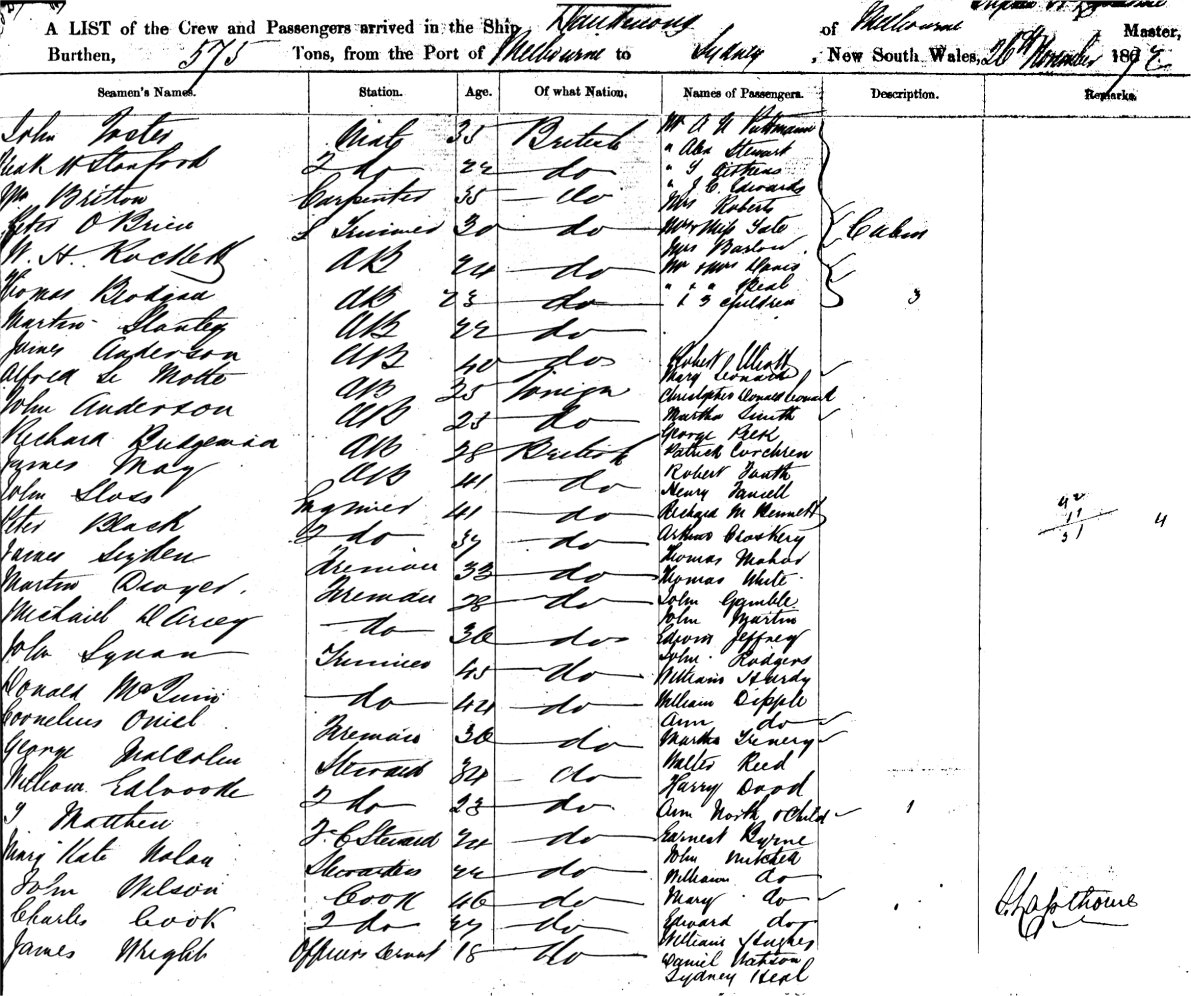 A LIST of the Crew and Passengers arrived in the Ship of Melbourne Master,
Burthen, 575 Tons, from the Port of Melbourne to Sydney, New South Wales, 26th November 187
Seamen's Names. Station. Age. Of what Nation. Names of Passengers. Description. Remarks.
John Foster Mate 35 British Mr A
Stanford 2 do 22 do " Alex Stewart
" Aitkens
Wm Britton Carpenter 35 do " J. C. Edwards
Mrs Roberts
Peter O'Brien L Trimmer 30 do Mrs & Miss Tate Cabin
Mrs Barlow
W. H. Rockett AB 24 do Mr & Mrs Davis
" & " Real
Thomas AB 23 do & 3 children 3
Martin Stanley AB 22 do
James Anderson AB 40 do Robert Eliott
Mary Leonard
Alfred Le Motte AB 35 Foreign Christopher Donald Leonard
John Anderson AB 25 do Martha Smith
George Peek
Richard Bridgeman AB 28 British Patrick Corchren
James May AB 41 do Robert
Henry
John Sloss Engineer 41 do Richard M Kennett
Peter Black 2 do 37 do Croskery 4
James Fireman 33 do Thomas
Thomas White
Martin Dwyer. Fireman 28 do John Gamble
John Martin
Michael D'Arcy do 36 do Edwin Jeffrey
John Rodgers
John Lynan Trimmer 45 do William Hardy
Donald McQuin do 42 do William Dipple
Ann do
Cornelius Oniel Fireman 36 do Martha Trenery
George Malcolm Steward 34 do Walter Reed
Harry Dood
William 2 do 23 do Ann North & Child 1
Matthew F. C Steward 24 do Earnest Byrne
John Mitchell
Mary Kate Nolan Stewardess 22 do William do
John Wilson Cook 46 do Mary do
Charles Cook 2 do 27 do Edward do
William Hughes
James Wright Officers Servant 18 do Daniel Watson
Sydney Heal